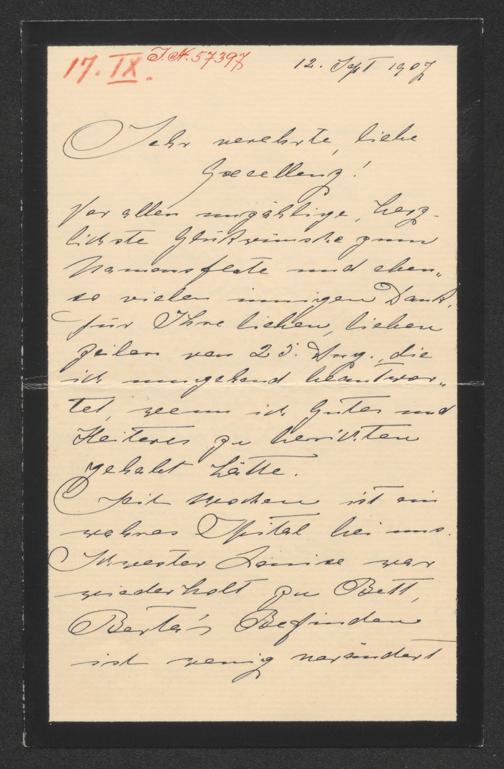 17. IX.
I.N. 57397
12. Sept 1907
Sehr verehrte, liebe
Excellenz!
Vor allem unzählige, herz-
lichste Glückwünsche zum
Namensfeste und eben-
so vielen innigen Dank,
für Ihre lieben, lieben
Zeilen von 25. Aug., die
ich umgehend beantwor-
tet, wenn ich Gutes und
Heiteres zu berichten
gehabt hätte.
Seit Wochen ist ein
wahres Spital bei uns.
Schwester Louise war
wiederholt zu Bett,
Berta's Befinden
ist wenig verändert